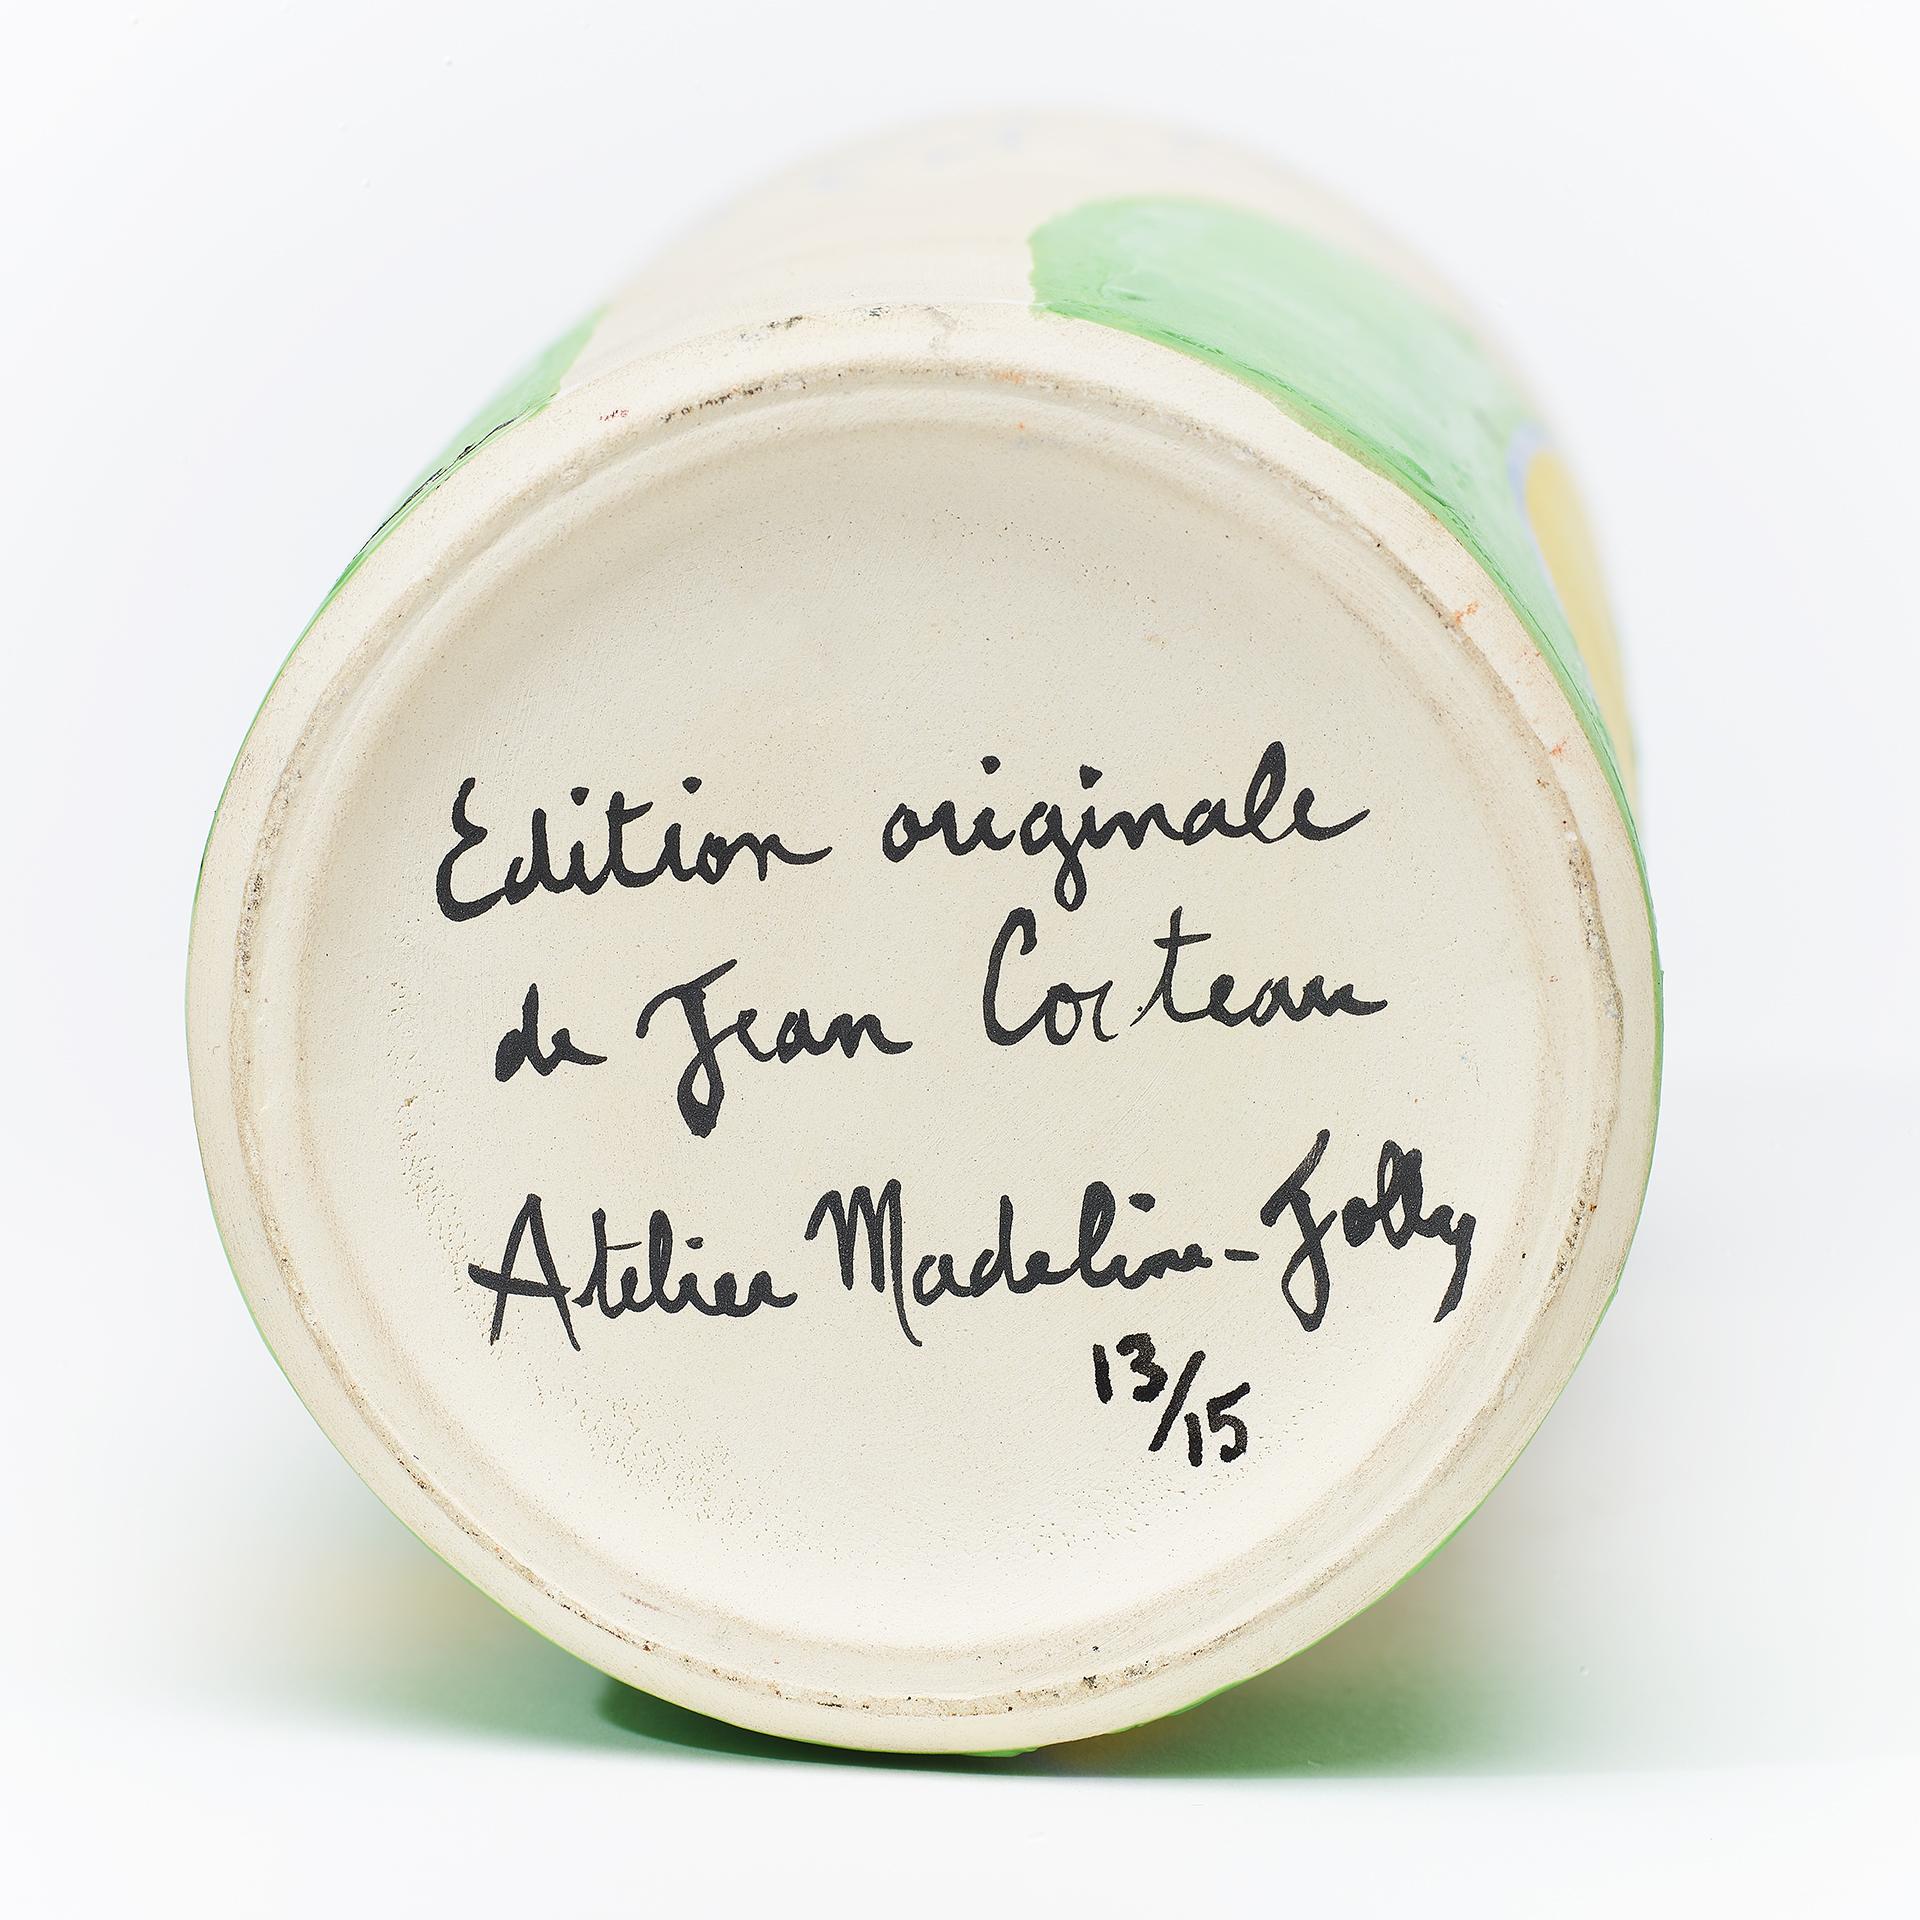 Edition originale
de Jean Cocteau
Atelier Madeline-Jolly
13/15